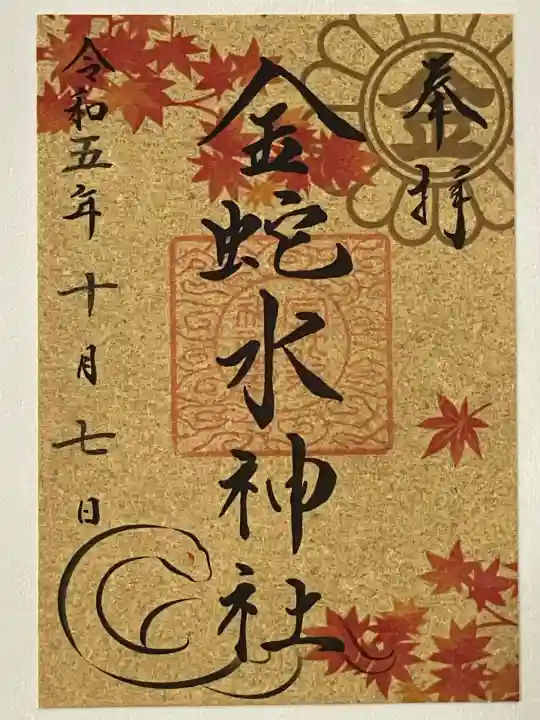 奉拝
金
金蛇水神社
令和五年十月七日